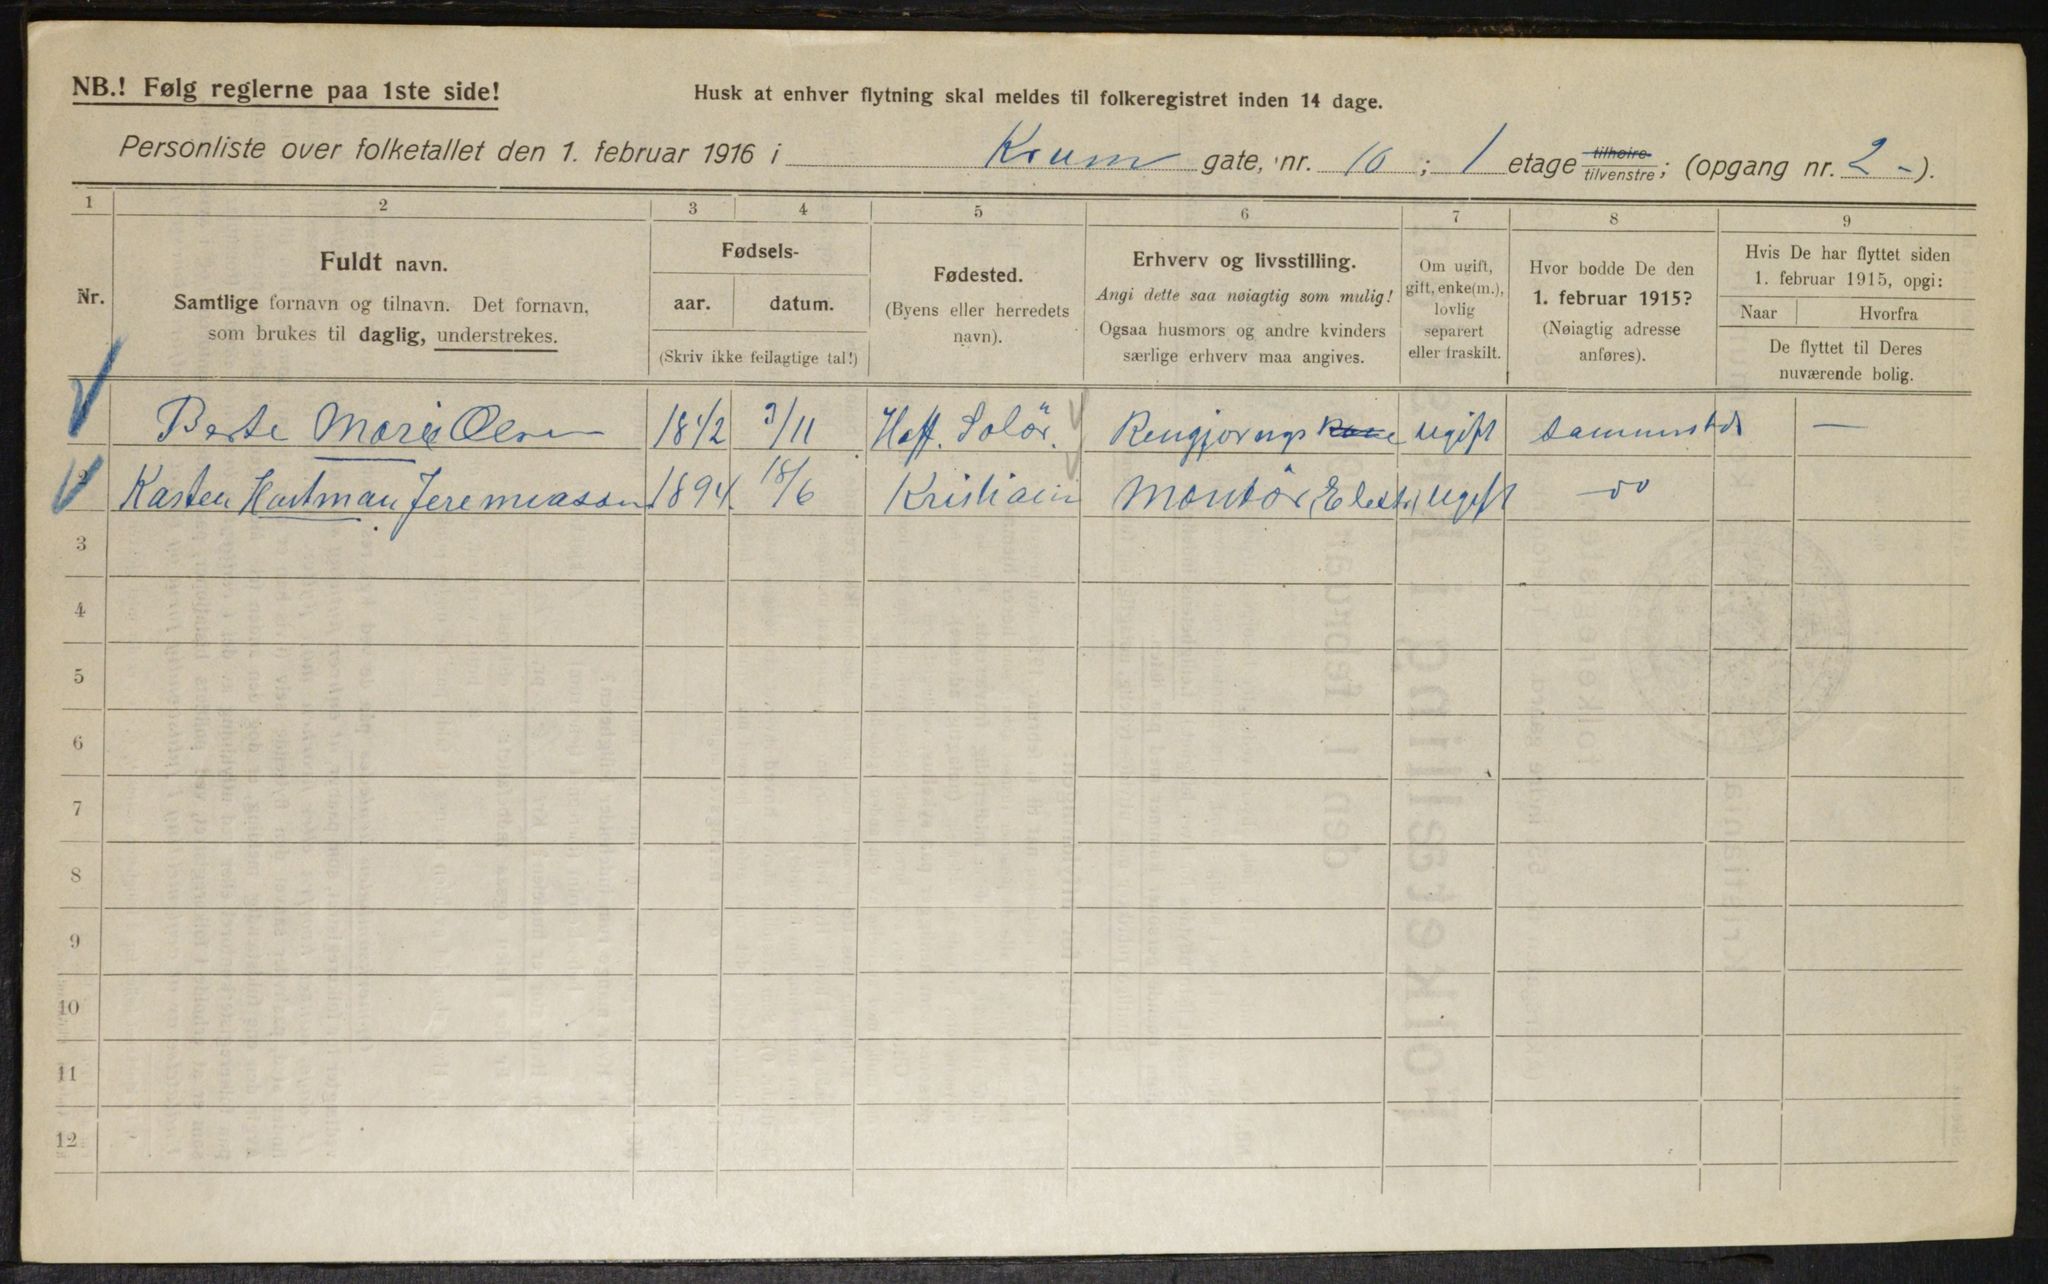 NB.! Følg reglerne paa 1ste side!
Husk at enhver flytning skal meldes til folkeregistret inden 14 dage.
Personliste over folketallet den 1. februar 1916 i Krum gate, nr. 10 ; 1 etage tilhøire/tilvenstre; (opgang nr. 2 - ).
1 2 3 4 5 6 7 8 9
Nr.
Fuldt navn.
Samtlige fornavn og tilnavn. Det fornavn,
som brukes til daglig, understrekes.
Fødsels-
aar. datum.
(Skriv ikke feilagtige tal!)
Fødested.
(Byens eller herredets
navn).
Erhverv og livsstilling.
Angi dette saa nøiagtig som mulig!
Ogsaa husmors og andre kvinders
særlige erhverv maa angives.
Om ugift,
gift, enke(m.),
lovlig
separert
eller fraskilt.
Hvor bodde De den
1. februar 1915?
(Nøiagtig adresse
anføres).
Hvis De har flyttet siden
1. februar 1915, opgi:
Naar Hvorfra
De flyttet til Deres
nuværende bolig.
Berte Marie Olsen 1842 3/11 Hoff. Solör. Rengjørings kone ugift Sammested —
2 Karsten Hartman Jeremiassen 1894 18/6 Kristiania Montör (Elektr) ugift —"—
3
4
5
6
7
8
9
10
11
12